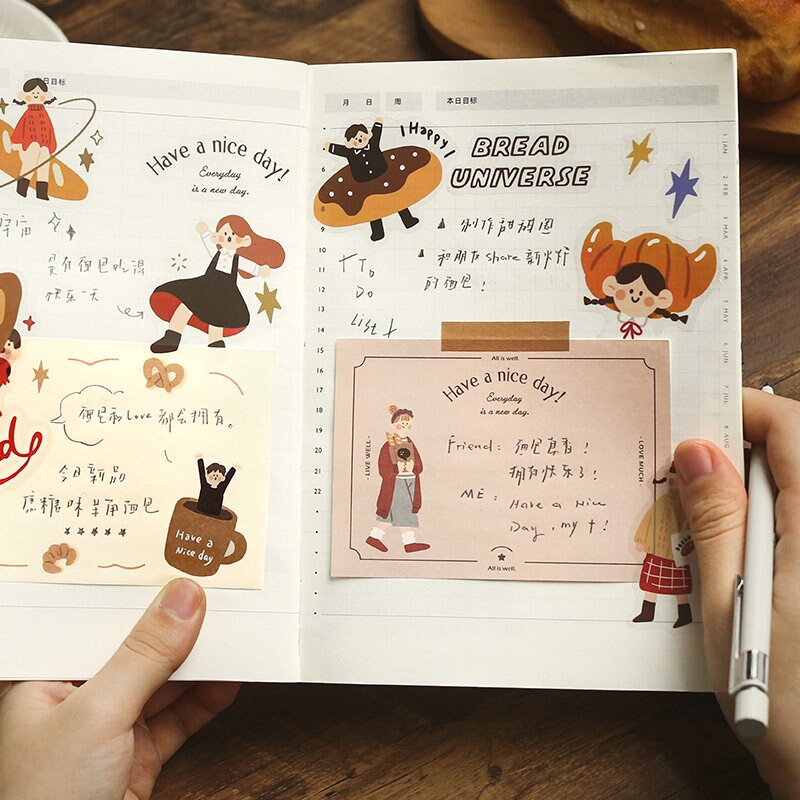 日目标
Have a nice day!
Everyday
is a new day.
是有面包吃得
快乐一天
面包和Love都会拥有。
今日新品
焦糖味羊角面包
★★★★★
Have a
Nice day
月 日 周 本日目标
I Happy!
BREAD
UNIVERSE
▲ 创作甜甜圈
▲ 和朋友share新火炉
的面包!
To
Do
List
5
6
7
8
9
10
11
12
13
14
15
16
17
18
19
20
21
22
All is well.
Have a nice day!
Everyday
is a new day.
- LIVE WELL -
- LOVE MUCH -
Friend: 面包真香!
拥有快乐了!
ME: Have a Nice
Day, my †!
All is well.
1 JAN
2 FEB
3 MAR
4 APR
5 MAY
6 JUN
7 JUL
8 AUG